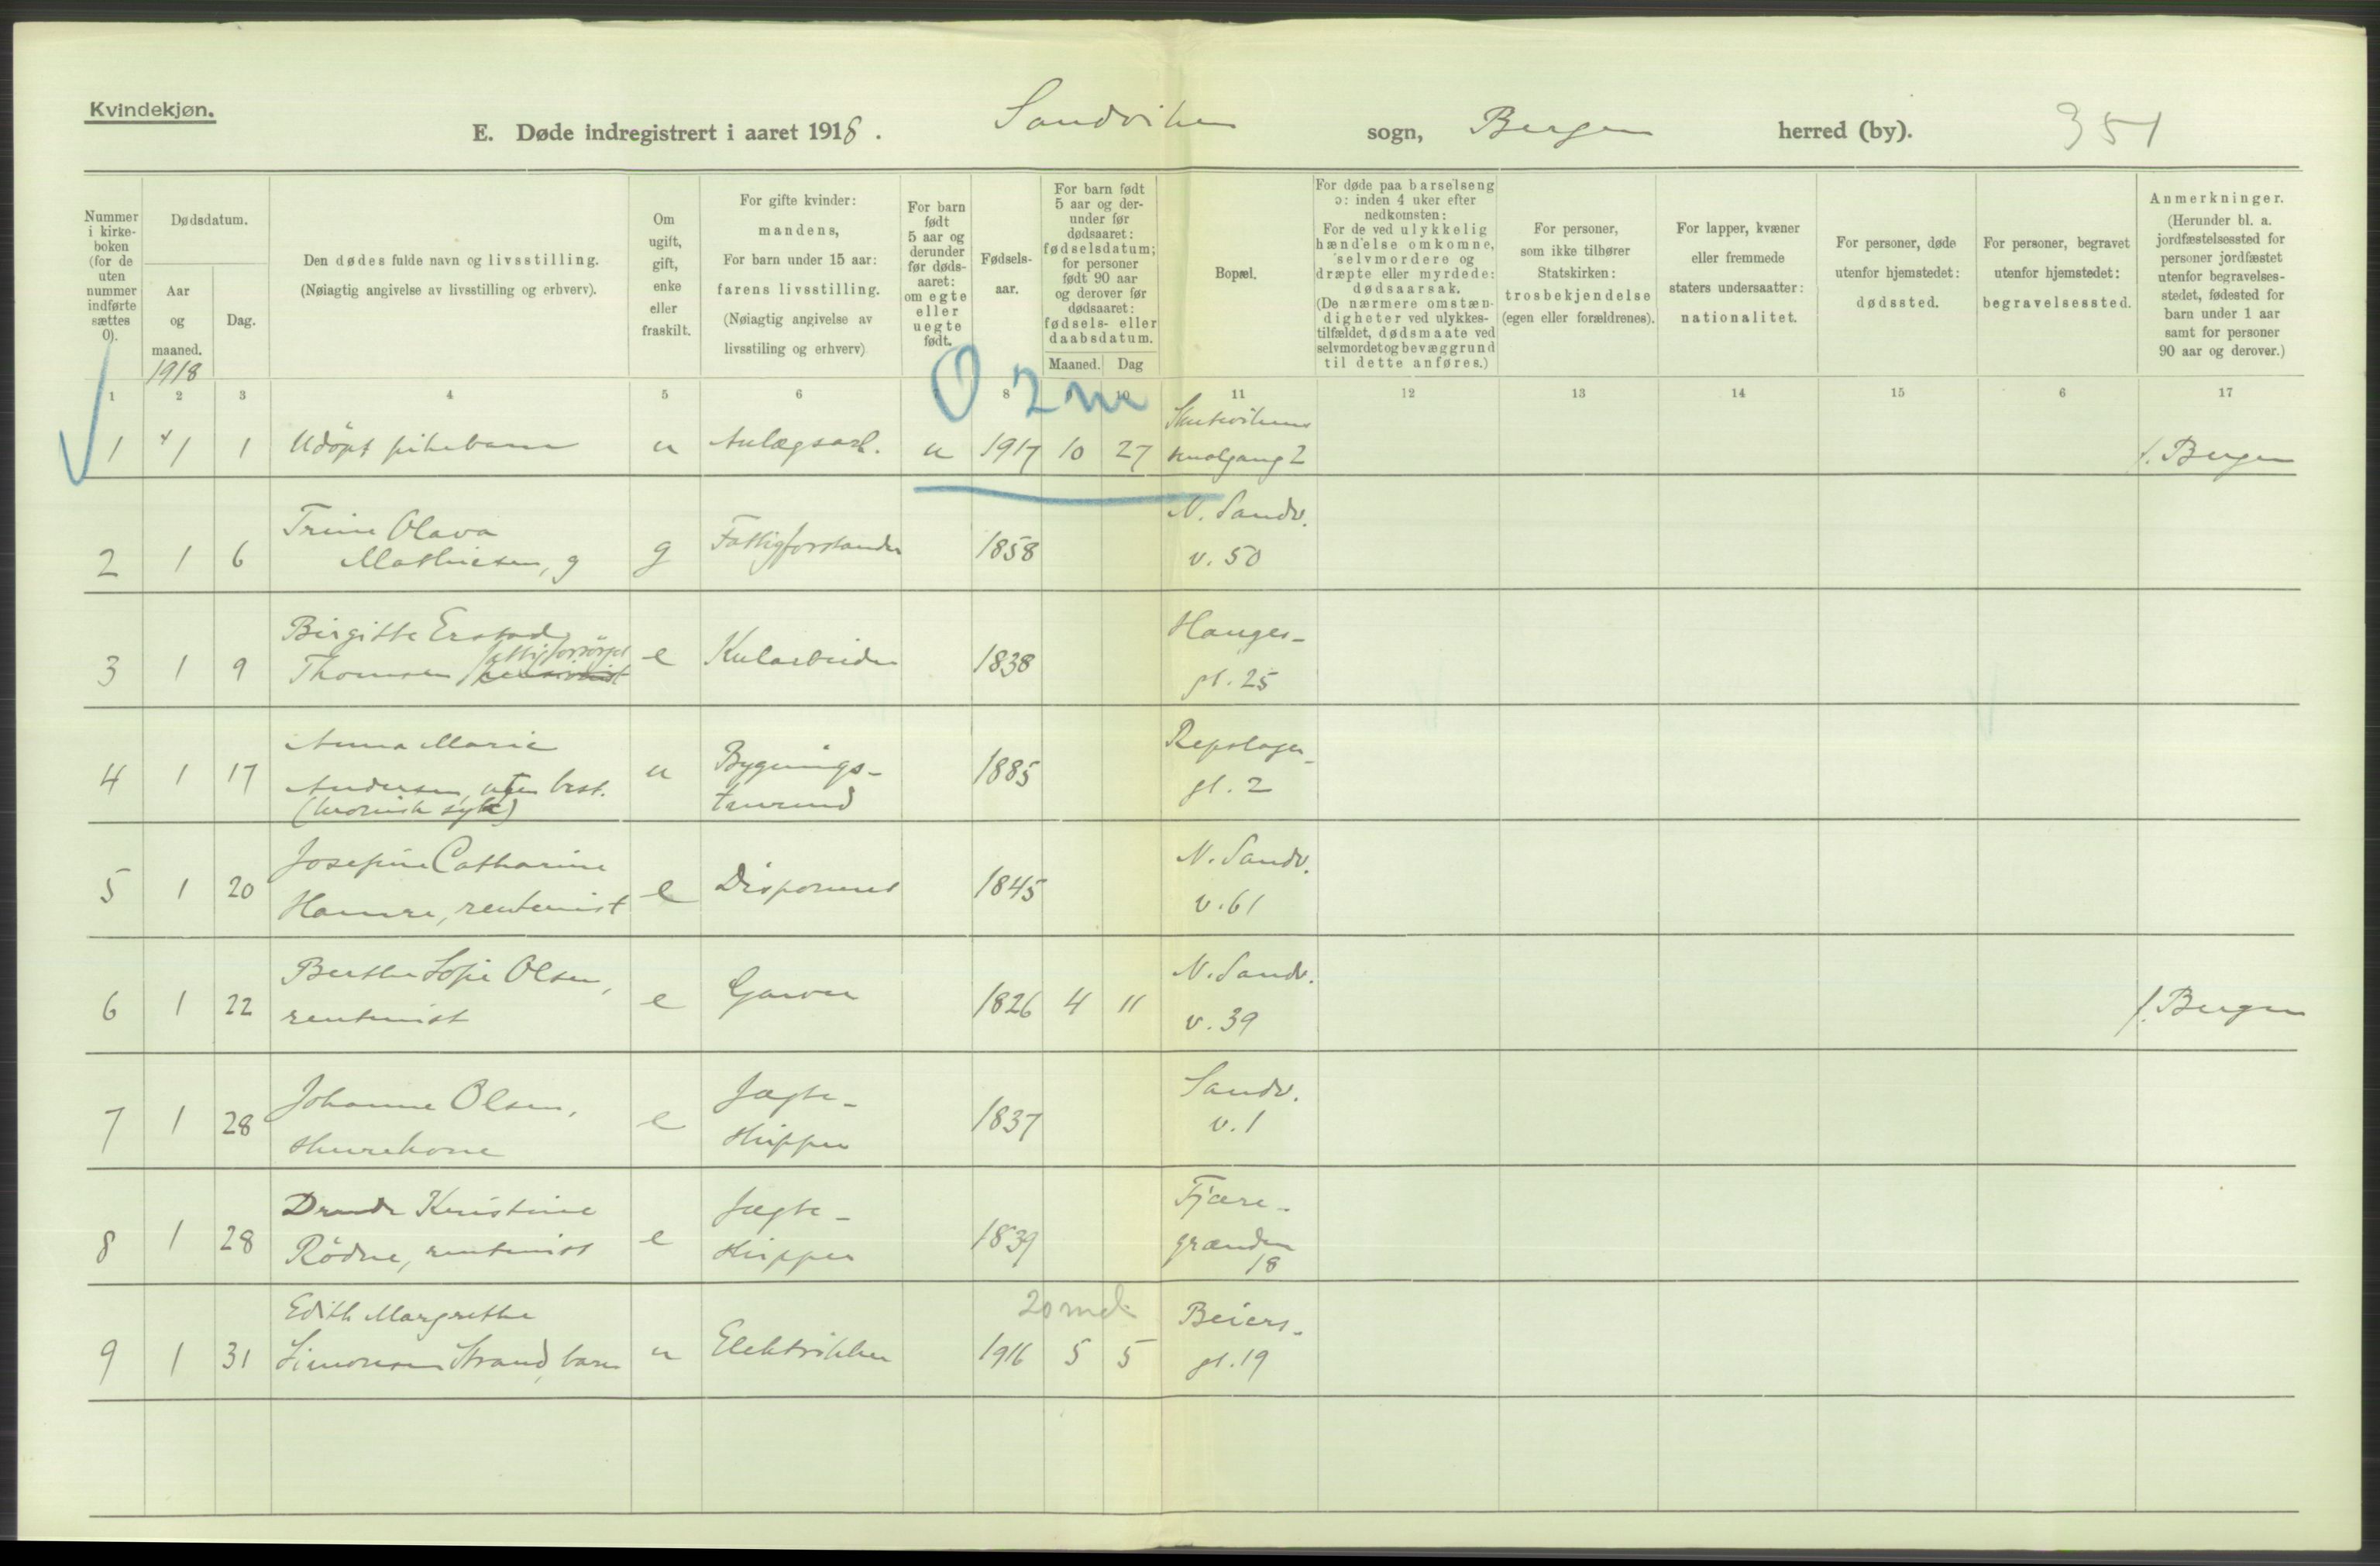 Kvindekjøn.
E. Døde indregistrert i aaret 1918. Sandviken sogn, Bergen herred (by). 351
Nummer i kirke-boken (for de uten nummer indførte sættes 0).
Dødsdatum.
Aar og maaned.
1918
Dag.
Den dødes fulde navn og livsstilling.
(Nøiagtig angivelse av livsstilling og erhverv).
Om ugift, gift, enke eller fraskilt.
For gifte kvinder: mandens,
For barn under 15 aar: farens livsstilling.
(Nøiagtig angivelse av livsstiling og erhverv)
For barn født 5 aar og derunder før døds-aaret: om egte eller uegte født.
Fødsels-aar.
For barn født 5 aar og der-under før dødsaaret: fødselsdatum; for personer født 90 aar og derover før dødsaaret: fødsels- eller daabsdatum.
Maaned. Dag
Bopæl.
For døde paa barselseng ɔ: inden 4 uker efter nedkomsten:
For de ved ulykkelig hændelse omkomne, selvmordere og dræpte eller myrdede: dødsaarsak.
(De nærmere omstæn-digheter ved ulykkes-tilfældet, dødsmaate ved selvmordet og bevæggrund til dette anføres.)
For personer, som ikke tilhører Statskirken: trosbekjendelse (egen eller forældrenes).
For lapper, kvæner eller fremmede staters undersaatter: nationalitet.
For personer, døde utenfor hjemstedet: dødssted.
For personer, begravet utenfor hjemstedet: begravelsessted.
Anmerkninger.
(Herunder bl. a. jordfæstelsessted for personer jordfæstet utenfor begravelses-stedet, fødested for barn under 1 aar samt for personer 90 aar og derover.)
1 2 3 4 5 6 8 10 11 12 13 14 15 6 17
0 2 m
1 1 1 Udöpt pikebarn u Anlægsarb. u 1917 10 27 Skutevikens smalgang 2 f. Bergen
2 1 6 Trine Olava Mathiesen, g g Fattigforstander 1858 N. Sandv. v. 50
3 1 9 Birgitte Erstad Thomsen fattigforsörget e Kularbeider 1838 Hauges- gt. 25
4 1 17 Anna Marie Andersen, uten best. (kronisk syk) u Bygnings- tømmermand 1885 Repslager- gt. 2
5 1 20 Josefine Catharine Hamre, rentenist e Disponent 1845 N. Sandv. v. 61
6 1 22 Berthe Sofie Olsen, rentenist e Garver 1826 4 11 N. Sandv. v. 39 f. Bergen
7 1 28 Johanne Olsen, skurekone e Jægte- skipper 1837 Sandv. v. 1
8 1 28 Drude Kristine Rödne, rentenist e Jægte- skipper 1839 Fjære- grænden 18
20 mdr
9 1 31 Edith Margrethe Simonsen Strand, barn u Elektriker 1916 5 5 Beiers- gt. 19